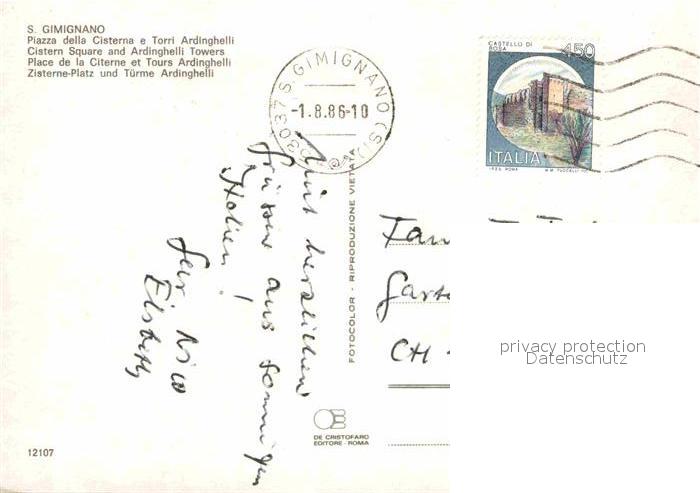 S. GIMIGNANO
Piazza della Cisterna e Torri Ardinghelli
Cistern Square and Ardinghelli Towers
Place de la Citerne et Tours Ardinghelli
Zisterne-Platz und Türme Ardinghelli
53037 S. GIMIGNANO (SI)
-1.8.86-10
CASTELLO DI
ROSA
450
ITALIA
I.P.Z.S. ROMA
Mit herzlichen
Grüssen aus sonnigen
Italien!
Nico
Elsbeth
FOTOCOLOR - RIPRODUZIONE VIETATA
Fam
Garte
CH -
privacy protection
Datenschutz
DE CRISTOFARO
EDITORE - ROMA
12107